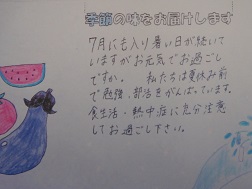 季節の味をお届けします
7月にも入り暑い日が続いて
いますがお元気でお過ごし
ですか。 私たちは夏休み前
で勉強、部活をがんばっています。
食生活・熱中症に充分注意
してお過ごし下さい。